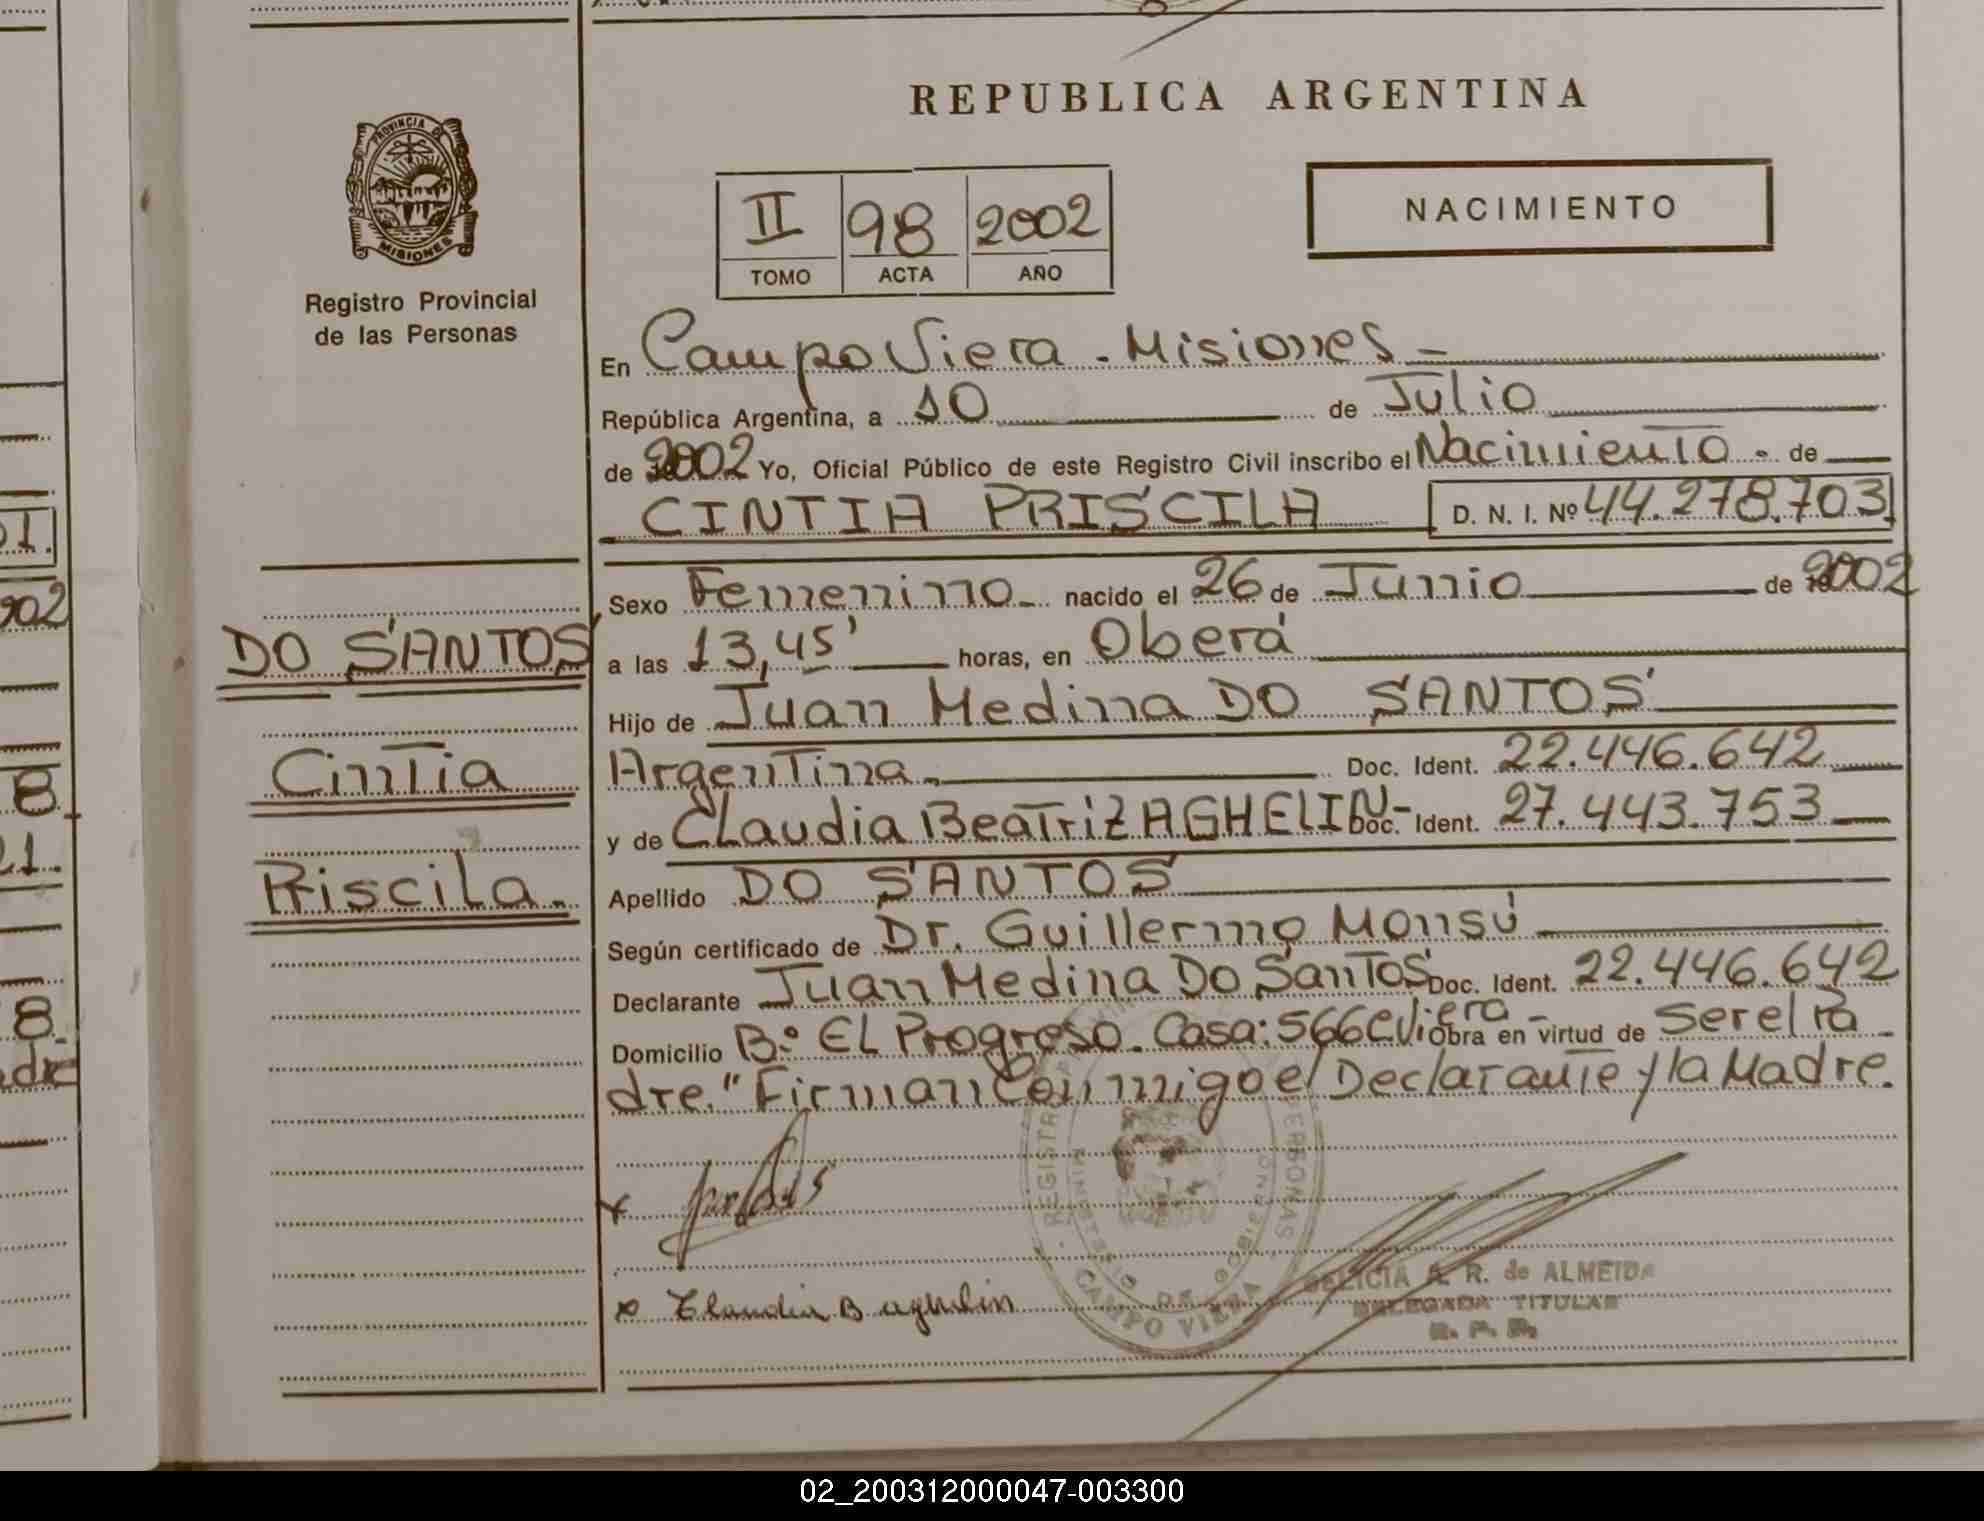 REPUBLICA ARGENTINA
PROVINCIA DE
MISIONES
Registro Provincial
de las Personas
II 98 2002
TOMO ACTA AÑO
NACIMIENTO
En Campo Viera - Misiones -
República Argentina, a 10 de Julio
de 2002 Yo, Oficial Público de este Registro Civil inscribo el Nacimiento. de
CINTIA PRISCILA D. N. I. Nº 44.278.703
Sexo Femenino - nacido el 26 de Junio de 2002
DO SANTOS
a las 13,45' horas, en Oberá
Hijo de Juan Medina DO SANTOS
Cintia
Argentina. Doc. Ident. 22.446.642
y de Claudia Beatriz AGHELIN- Doc. Ident. 27.443.753
Priscila.
Apellido DO SANTOS
Según certificado de Dr. Guillermo Monsú
Declarante Juan Medina Do Santos Doc. Ident. 22.446.642
Domicilio B:º El Progreso. Casa: 566 C Viera - Obra en virtud de Ser el Pa
dre." Firman Conmigo el Declarante y la Madre.
x
x Claudia B aghelin
REGISTRO PERSONAS
MINISTERIO DE GOBIERNO
CAMPO VIERA
R. de ALMEIDA
DELEGADA TITULAR
R. P. P.
01.
002
8
21.
8
adre
02_200312000047-003300